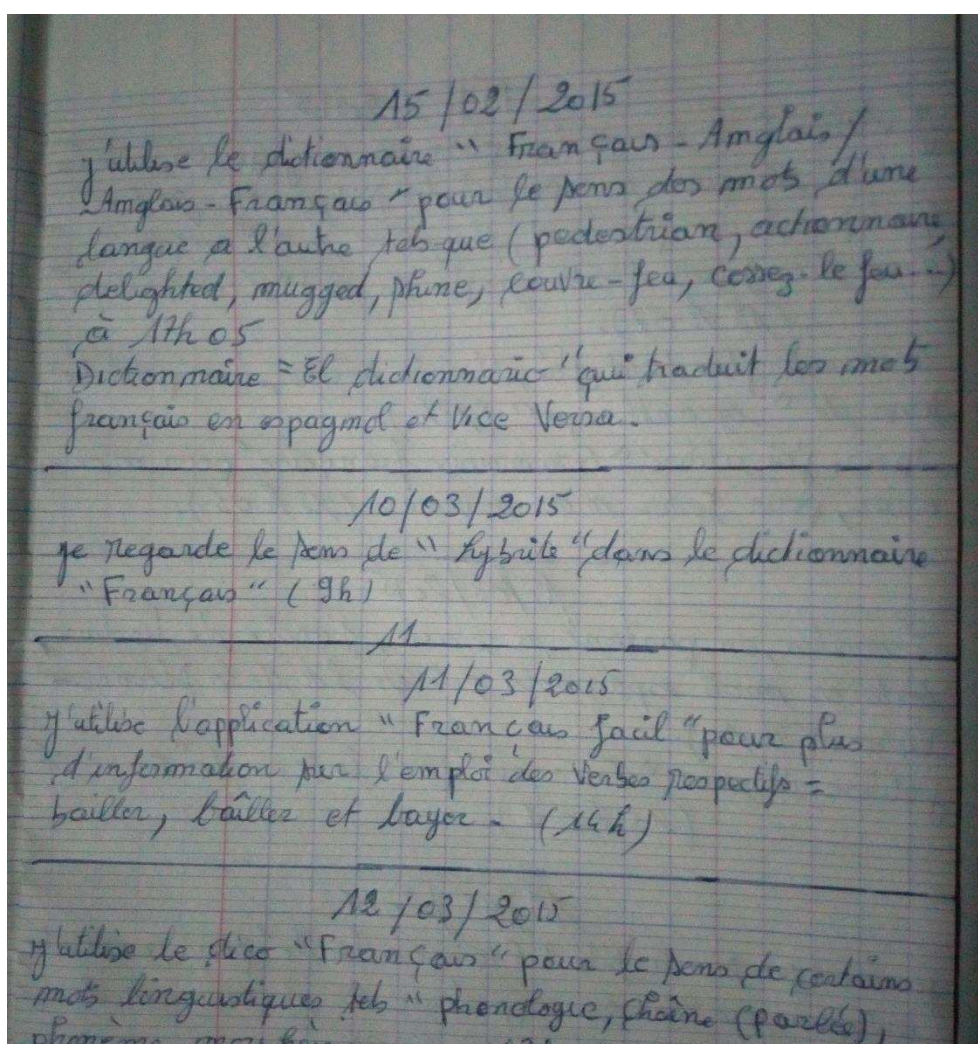 15/02/2015
j'utilise le dictionnaire " Français - Anglais /
Anglais - Français " pour le sens des mots d'une
langue a l'autre tels que ( pedestrian, actionnaire,
delighted, mugged, couvre-feu, cessez-le feu...)
à 17h 05
Dictionnaire = El dictionnario " qui traduit les mots
français en espagnol et vice Versa.
10/03/2015
je regarde le sens de " hybrite " dans le dictionnaire
" Français " ( 9h )
11
11/03/2015
j'utilise l'application " Français facil " pour plus
d'information sur l'emploi des verbes respectifs =
bailler, bâiller et bayer - (14h)
12/03/2015
j'utilise le dico " Français " pour le sens de certains
mots linguistiques tels " phonologie, chaîne (parlée),
phonème,